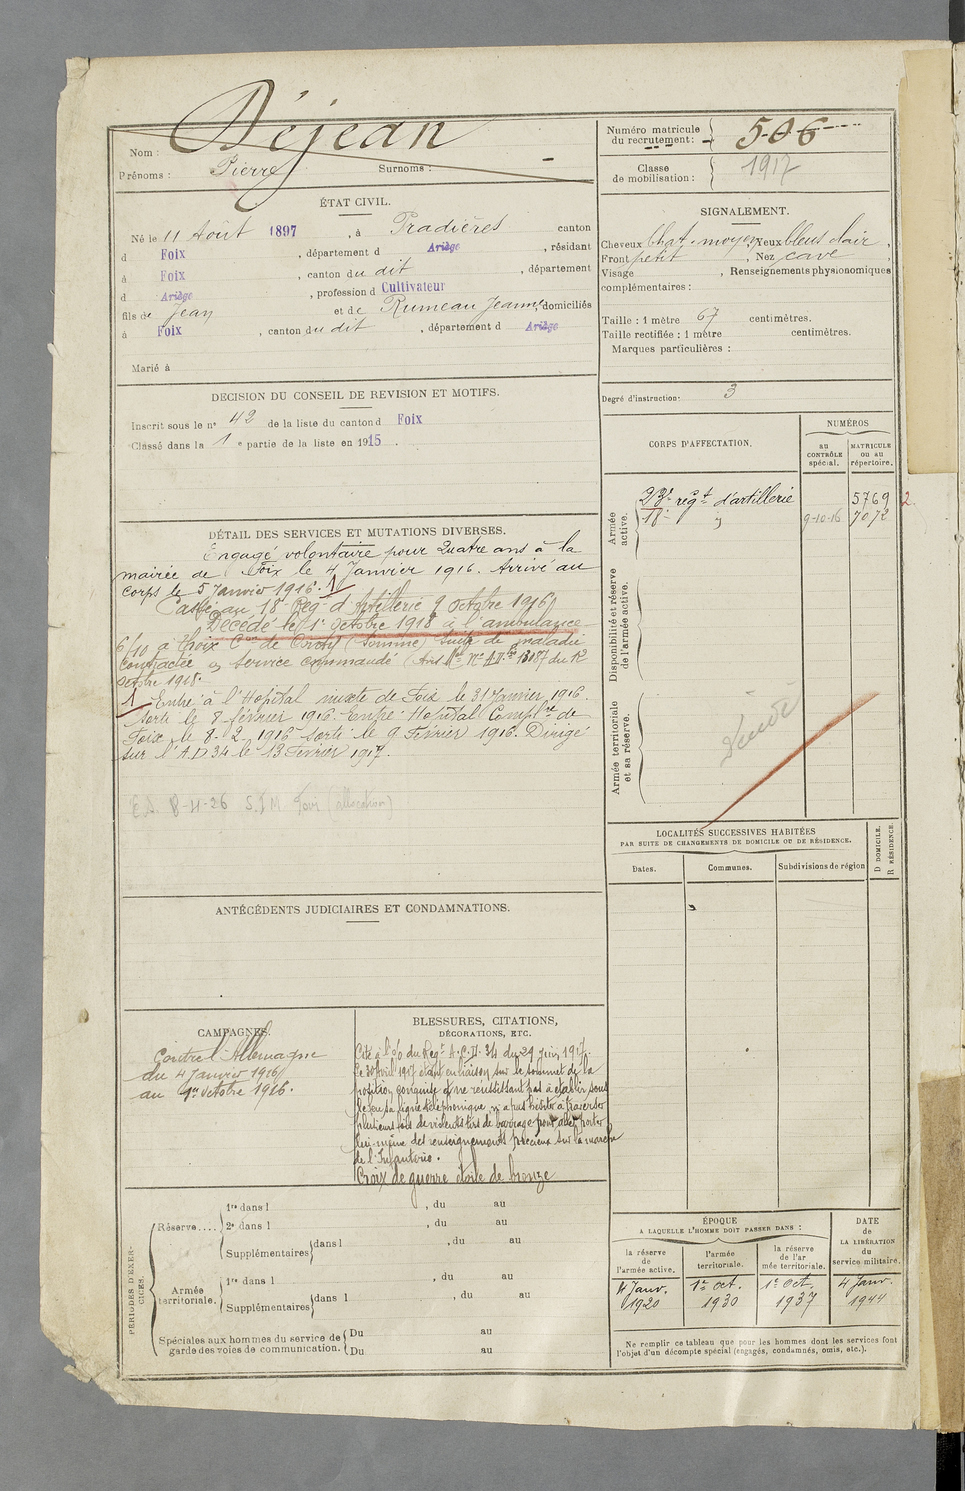 Nom : Déjean
Prénoms : Pierre Surnoms : -
Numéro matricule du recrutement : 506
Classe de mobilisation : 1917
ÉTAT CIVIL.
Né le 11 Août 1897, à Pradières canton
d Foix, département d Ariège, résidant
à Foix, canton du dit, département
d Ariège, profession d Cultivateur
fils de Jean et de Rumeau Jeanne, domiciliés
à Foix, canton du dit, département d Ariège
Marié à
SIGNALEMENT.
Cheveux Chat. moyen, Yeux bleus clair,
Front petit, Nez cave,
Visage , Renseignements physionomiques
complémentaires :
Taille : 1 mètre 67 centimètres.
Taille rectifiée : 1 mètre centimètres.
Marques particulières :
Degré d'instruction : 3
DECISION DU CONSEIL DE REVISION ET MOTIFS.
Inscrit sous le n° 42 de la liste du canton d Foix
Classé dans la 1 e partie de la liste en 1915.
CORPS D'AFFECTATION.
NUMÉROS
au CONTRÔLE spécial.
MATRICULE ou au répertoire.
Armée active.
23e regt d'artillerie 5769 2.
18e " 9-10-16 7072
Disponibilité et réserve de l'armée active.
Armée territoriale et sa réserve.
Décédé
DÉTAIL DES SERVICES ET MUTATIONS DIVERSES.
Engagé volontaire pour Quatre ans à la
mairie de Foix le 4 Janvier 1916. Arrivé au
corps le 5 Janvier 1916. 1
Passé au 18e Reg. d'Artillerie 9 Octobre 1916
Décédé le 1er Octobre 1918 à l'ambulance
6/10 à Croix Con de Corchy (Somme) Suite de maladie
contractée en service commandé (Avis Mel No A.D. 13187 du 12
Octobre 1918.
1 Entré à l'Hopital mixte de Foix le 31 Janvier 1916.
Sorti le 8 février 1916. Entré Hopital Complre de
Foix le 8-2-1916 sorti le 9 Février 1916. Dirigé
sur l'A.D 34 le 13 Fevrier 1917.
8-4-26 (allocation)
LOCALITÉS SUCCESSIVES HABITÉES
PAR SUITE DE CHANGEMENTS DE DOMICILE OU DE RÉSIDENCE.
Dates. Communes. Subdivisions de région
D DOMICILE.
R RÉSIDENCE.
ANTÉCÉDENTS JUDICIAIRES ET CONDAMNATIONS.
CAMPAGNES.
Contre l'Allemagne
du 4 Janvier 1916
au 1er Octobre 1916.
BLESSURES, CITATIONS,
DÉCORATIONS, ETC.
Cité à l'O/ du Regt A.C.D. 34 du 29 Juin 1917.
Le 30 Avril 1917 étant en liaison sur le sommet de la
position conquise et ne réussissant pas à établir sous
le feu sa ligne téléphonique, n'a pas hésité à traverser
plusieurs fois de violents tirs de barrage pour aller porter
lui-même des renseignements précieux sur la marche
de l'Infanterie.
Croix de guerre étoile de bronze
PÉRIODES D'EXERCICES.
Réserve.... 1re dans l , du au
2e dans l , du au
Supplémentaires dans l , du au
Armée territoriale. 1re dans l , du au
Supplémentaires dans l , du au
Spéciales aux hommes du service de Du au
garde des voies de communication. Du au
ÉPOQUE
A LAQUELLE L'HOMME DOIT PASSER DANS :
la réserve de l'armée active.
l'armée territoriale.
la réserve de l'armée territoriale.
DATE de LA LIBÉRATION du service militaire.
4 Janv. 1920
1er Oct. 1930
1er Oct. 1937
4 Janv. 1944
Ne remplir ce tableau que pour les hommes dont les services font
l'objet d'un décompte spécial (engagés, condamnés, omis, etc.).